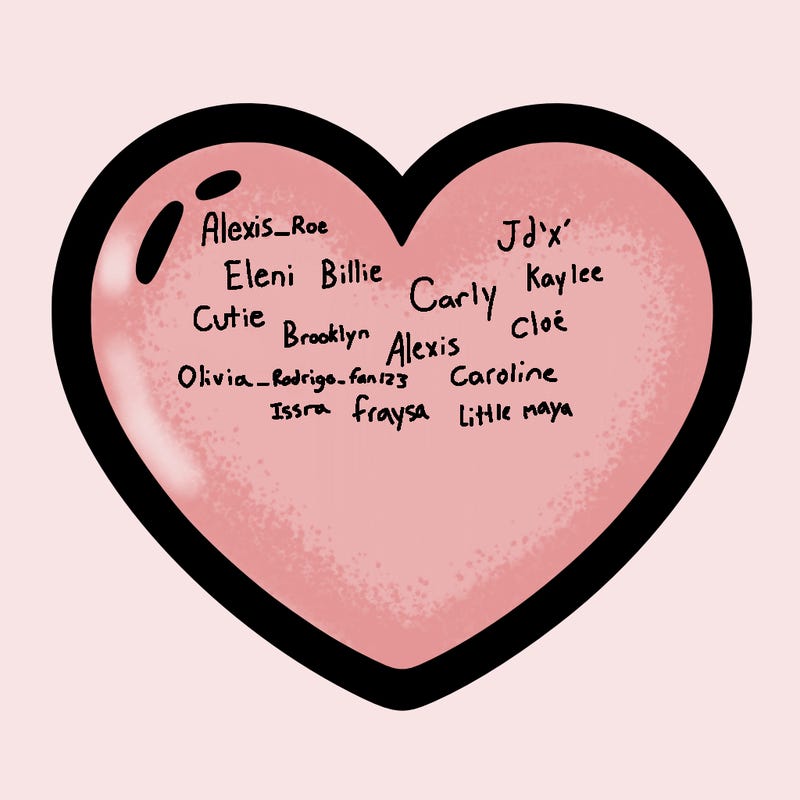 Alexis_Roe Jd'x'
Eleni Billie Carly Kaylee
Cutie Brooklyn Alexis Cloé
Olivia_Rodrigo_fan123 Caroline
Issra fraysa Little maya